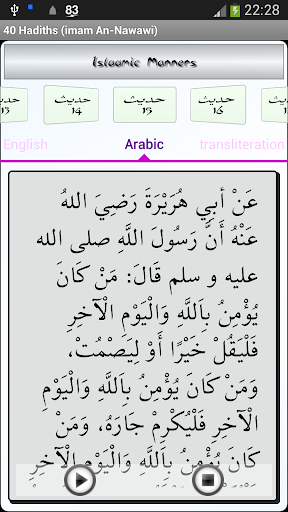 83 22:28
40 Hadiths (imam An-Nawawi)
Islaamic Manners
حديث 14 حديث 15 حديث 16
English Arabic transliteration
عَنْ أَبِي هُرَيْرَةَ رَضِيَ اللهُ
عَنْهُ أَنَّ رَسُولَ اللَّهِ صلى الله
عليه و سلم قَالَ: مَنْ كَانَ
يُؤْمِنُ بِاَللَّهِ وَالْيَوْمِ الْآخِرِ
فَلْيَقُلْ خَيْرًا أَوْ لِيَصْمُتْ،
وَمَنْ كَانَ يُؤْمِنُ بِاَللَّهِ وَالْيَوْمِ
الْآخِرِ فَلْيُكْرِمْ جَارَهُ، وَمَنْ
كَانَ يُؤْمِنُ بِاَللَّهِ وَالْيَوْمِ الْآخِرِ